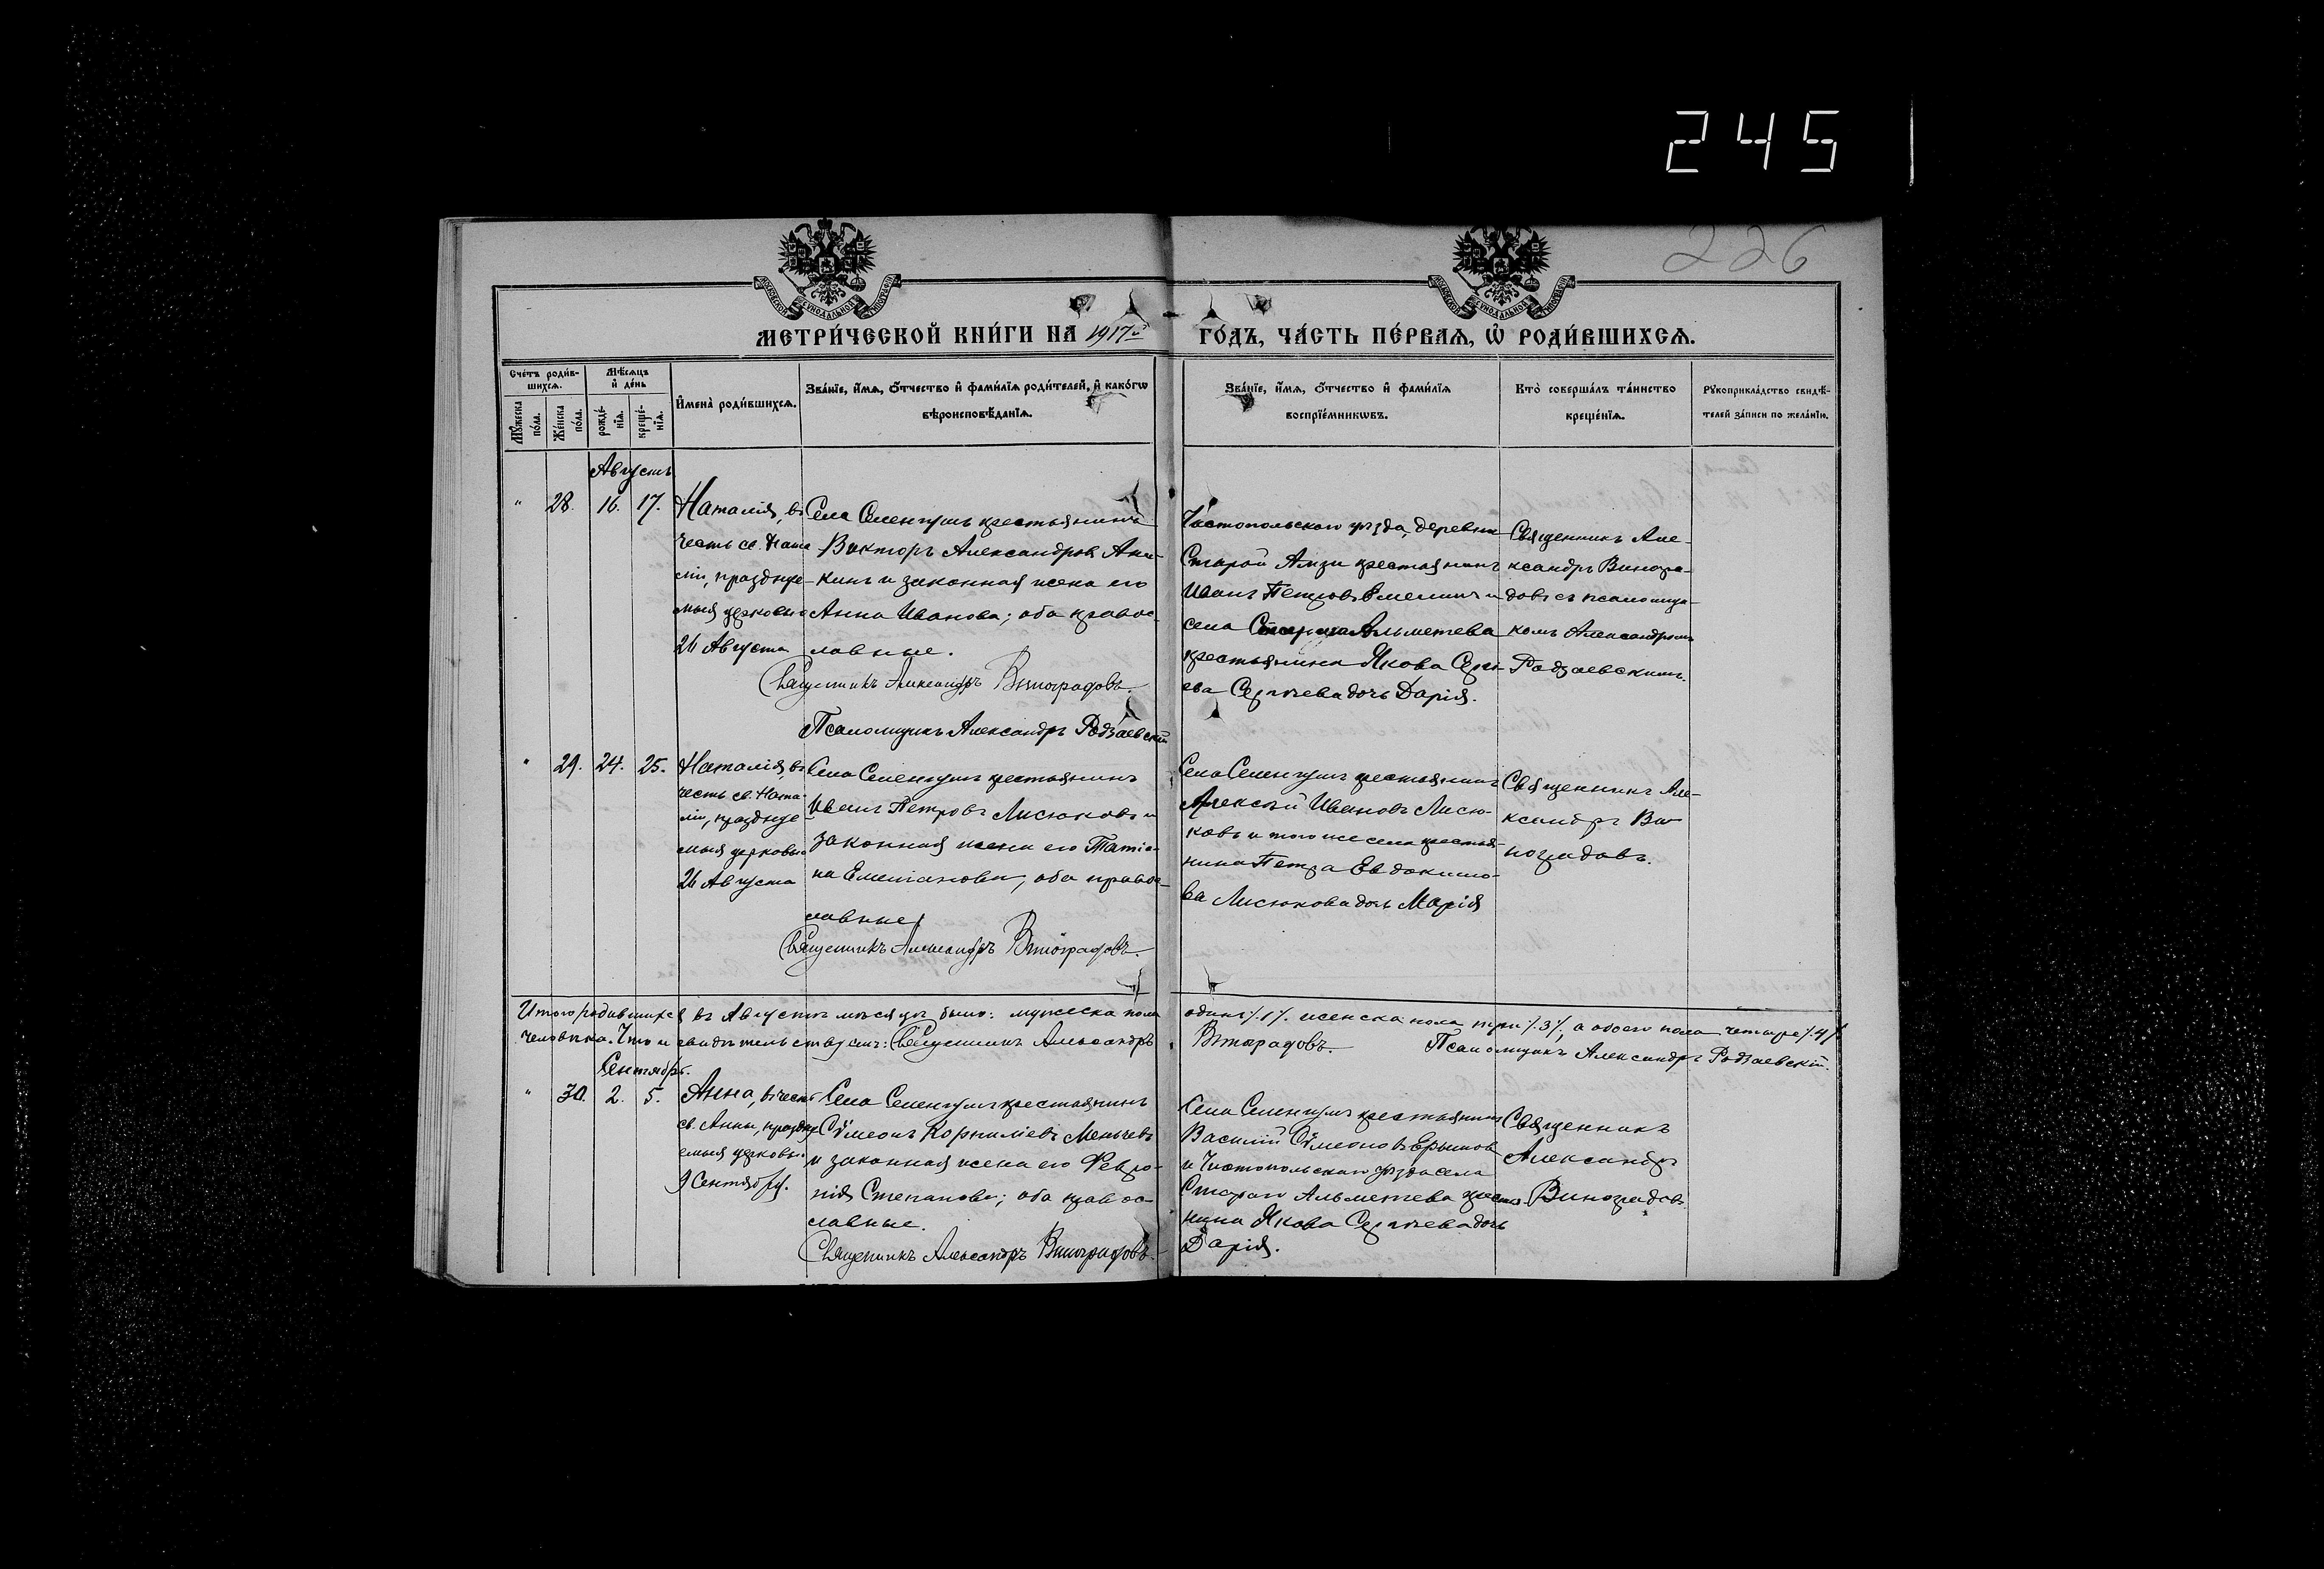 245
226
МЕТРИ́ЧЕСКОЙ КНИ́ГИ НА 1917й ГО́ДЪ, ЧА́СТЬ ПЕ́РВАЯ, Ѽ РОДИ́ВШИХСЯ.
Сче́тъ роди́в-
шихся.
Мѣ́сяцъ
и҆ де́нь
Мꙋ́жеска
по́ла.
Же́нска
по́ла.
рожде́-
нїя.
креще́-
нїя.
И҆мена̀ роди́вшихся.
Зва́нїе, и҆́мя, ѻ҆́тчество и҆ фами́лїя роди́телей, и҆ како́гѡ
вѣроисповѣ́данїя.
Зва́нїе, и҆́мя, ѻ҆́тчество и҆ фами́лїя
воспрїе́мникѡвъ.
Кто̀ соверша́лъ та́инство
креще́нїя.
Рꙋкоприкла́дство свидѣ́-
телей за́писи по жела́нїю.
Августъ
" 28. 16. 17.
Наталія, въ
честь св. Ната
ліи, празднуе-
мыя церковью
26 Августа
Села Селенгушъ крестьянинъ
Викторъ Александровъ
кинъ и законная жена его
Анна Иванова; оба правос-
лавные.
Священникъ Александръ Виноградовъ.
Псаломщикъ Александръ Родзаевскій
Чистопольскаго уѣзда, деревни
Старой Амзи крестьянинъ
Иванъ Петровъ и
села Стараго Альметева
крестьянина Якова Серге-
ева Сергѣева дочь Дарія.
Священникъ Але-
ксандръ Виногра-
довъ съ псаломщи-
комъ Александромъ
Родзаевскимъ.
" 29. 24. 25.
Наталія, въ
честь св. Ната-
ліи, праздуе
мыя церковью
26 Августа
Села Селенгушъ крестьянинъ
Иванъ Петровъ Лисюковъ и
законная жена его Татіа-
на Емеліанова, оба правос-
лавные
Священникъ Александръ Виноградовъ.
Села Селенгушъ крестьянинъ
Алексѣй Ивановъ Лисю-
ковъ и того же села крестья-
нина Петра Евдокимо-
ва Лисюкова дочь Марія
Священникъ Але-
ксандръ Ви-
ноградовъ.
Итого родившихся въ Августѣ мѣсяцѣ было: мужеска пола одинъ /.1/. женска пола три /.3/, а обоего пола четыре /.4/.
человѣка. Что и свидѣтельствуемъ: Священникъ Александръ Виноградовъ. Псаломщикъ Александръ Родзаевскій.
Сентябрь.
" 30. 2. 5.
Анна, въ честь
св. Анны, праздну
емыя церковью
9 Сентября.
Села Селенгушъ крестьянинъ
Сѵмеонъ Корниліевъ Меньчевъ
и законная жена его Февро-
нія Степанова; оба правос-
лавные.
Священникъ Александръ Виноградовъ.
Села Селенгушъ крестьянинъ
Василій Сѵмеоновъ
и Чистопольскаго уѣзда села
Стараго Альметева крестья-
нина Якова Сергѣева дочь
Дарія.
Священникъ
Александръ
Виноградовъ.